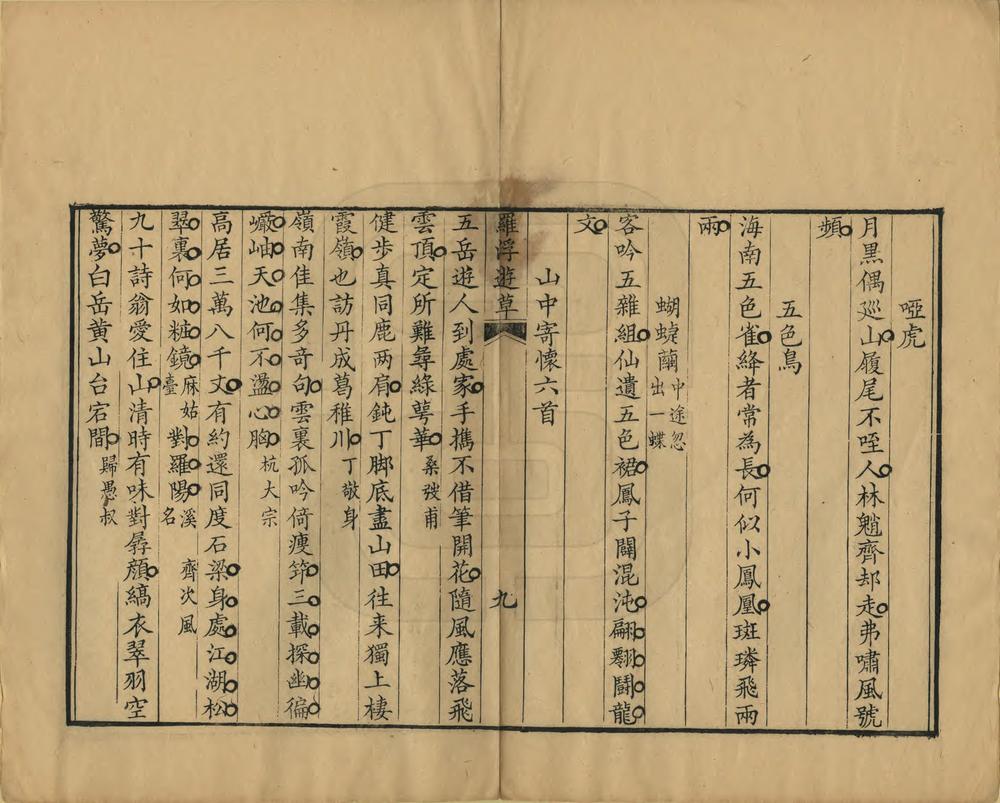 啞虎
月黑偶巡山履尾不咥人林魈齊却走弗嘯風號
頻
五色鳥
海南五色雀絳者常為長何似小鳳凰斑璘飛兩
兩
蝴蜨繭中途忽出一蝶
客吟五雜組仙遺五色裙鳳子闢混沌翩翻鬪龍
文
山中寄懷六首
羅浮遊草 九
五岳遊人到處家手攜不借筆開花隨風應落飛
雲頂定所難尋綠萼華桑弢甫
健步真同鹿两肩鈍丁脚底盡山田往来獨上棲
霞嶺也訪丹成葛稚川丁敬身
嶺南佳集多竒句雲裏孤吟倚瘦笻三載探幽徧
巘岫天池何不盪心胸杭大宗
高居三萬八千丈有約還同度石梁身處江湖松
翠裏何如粧鏡臺麻姑對羅陽溪名 齊次風
九十詩翁愛住山清時有味對㝷顔縞衣翠羽空
驚夢白岳黄山台宕間歸愚叔